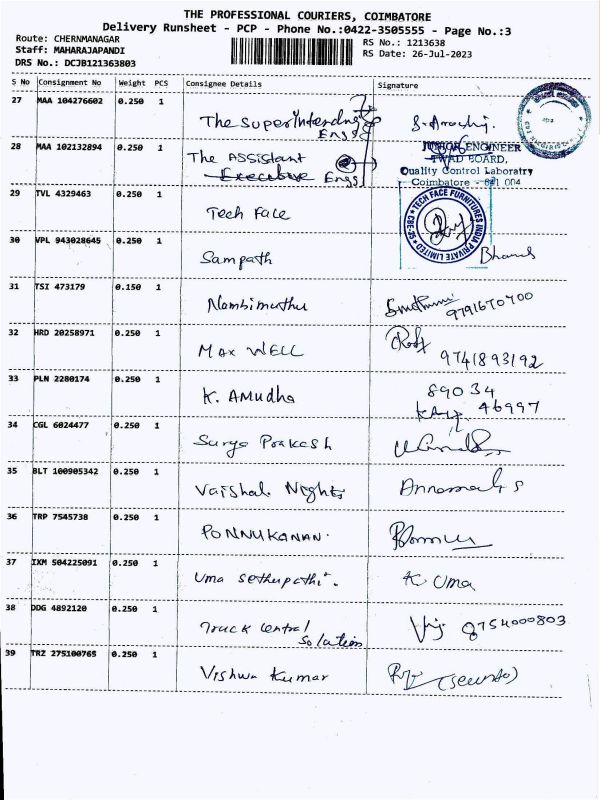 THE PROFESSIONAL COURIERS, COIMBATORE
Delivery Runsheet - PCP - Phone No.:0422-3505555 - Page No.:3
Route: CHERNMANAGAR
RS No.: 1213638
Staff: MAHARAJAPANDI
RS Date: 26-Jul-2023
DRS No.: DCJB121363803
S No Consignment No Weight PCS Consignee Details Signature
27 MAA 104276602 0.250 1
The Superintendng
Engg
28 MAA 102132894 0.250 1
The Assistant
Executive Engg
JUNIOR ENGINEER
TWAD BOARD,
Quality Control Laboratry
Coimbatore - 641 004
29 TVL 4329463 0.250 1
Tech Face
TECH FACE FURNITURES INDIA PRIVATE LIMITED
CBE-35
30 VPL 943028645 0.250 1
Sampath
31 TSI 473179 0.150 1
Nambimuthu
9791670700
32 HRD 20258971 0.250 1
MAX WELL
9741893192
33 PLN 2280174 0.250 1
K. AMUdha
89034
46997
34 CGL 6024477 0.250 1
Surya Prakash
35 BLT 100905342 0.250 1
Vaishal Nights
36 TRP 7545738 0.250 1
PONNUKANAN.
37 IXM 504225091 0.250 1
Uma Sethupathi.
K Uma
38 DDG 4892120 0.250 1
Truck Central
Solution
8754000803
39 TRZ 275100765 0.250 1
Vishwa Kumar